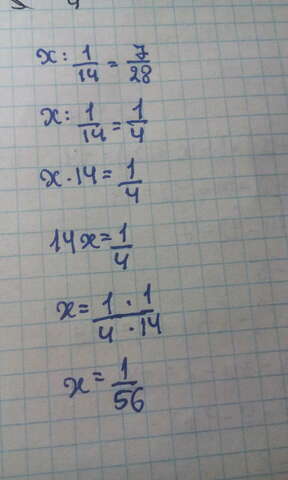 x : 1/14 = 7/28
x : 1/14 = 1/4
x · 14 = 1/4
14x = 1/4
x = 1 · 1 / 4 · 14
x = 1/56